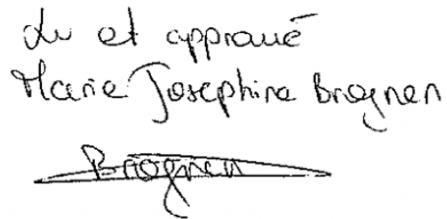 Lu et approuvé
Marie Josephine Brognen
Brognen